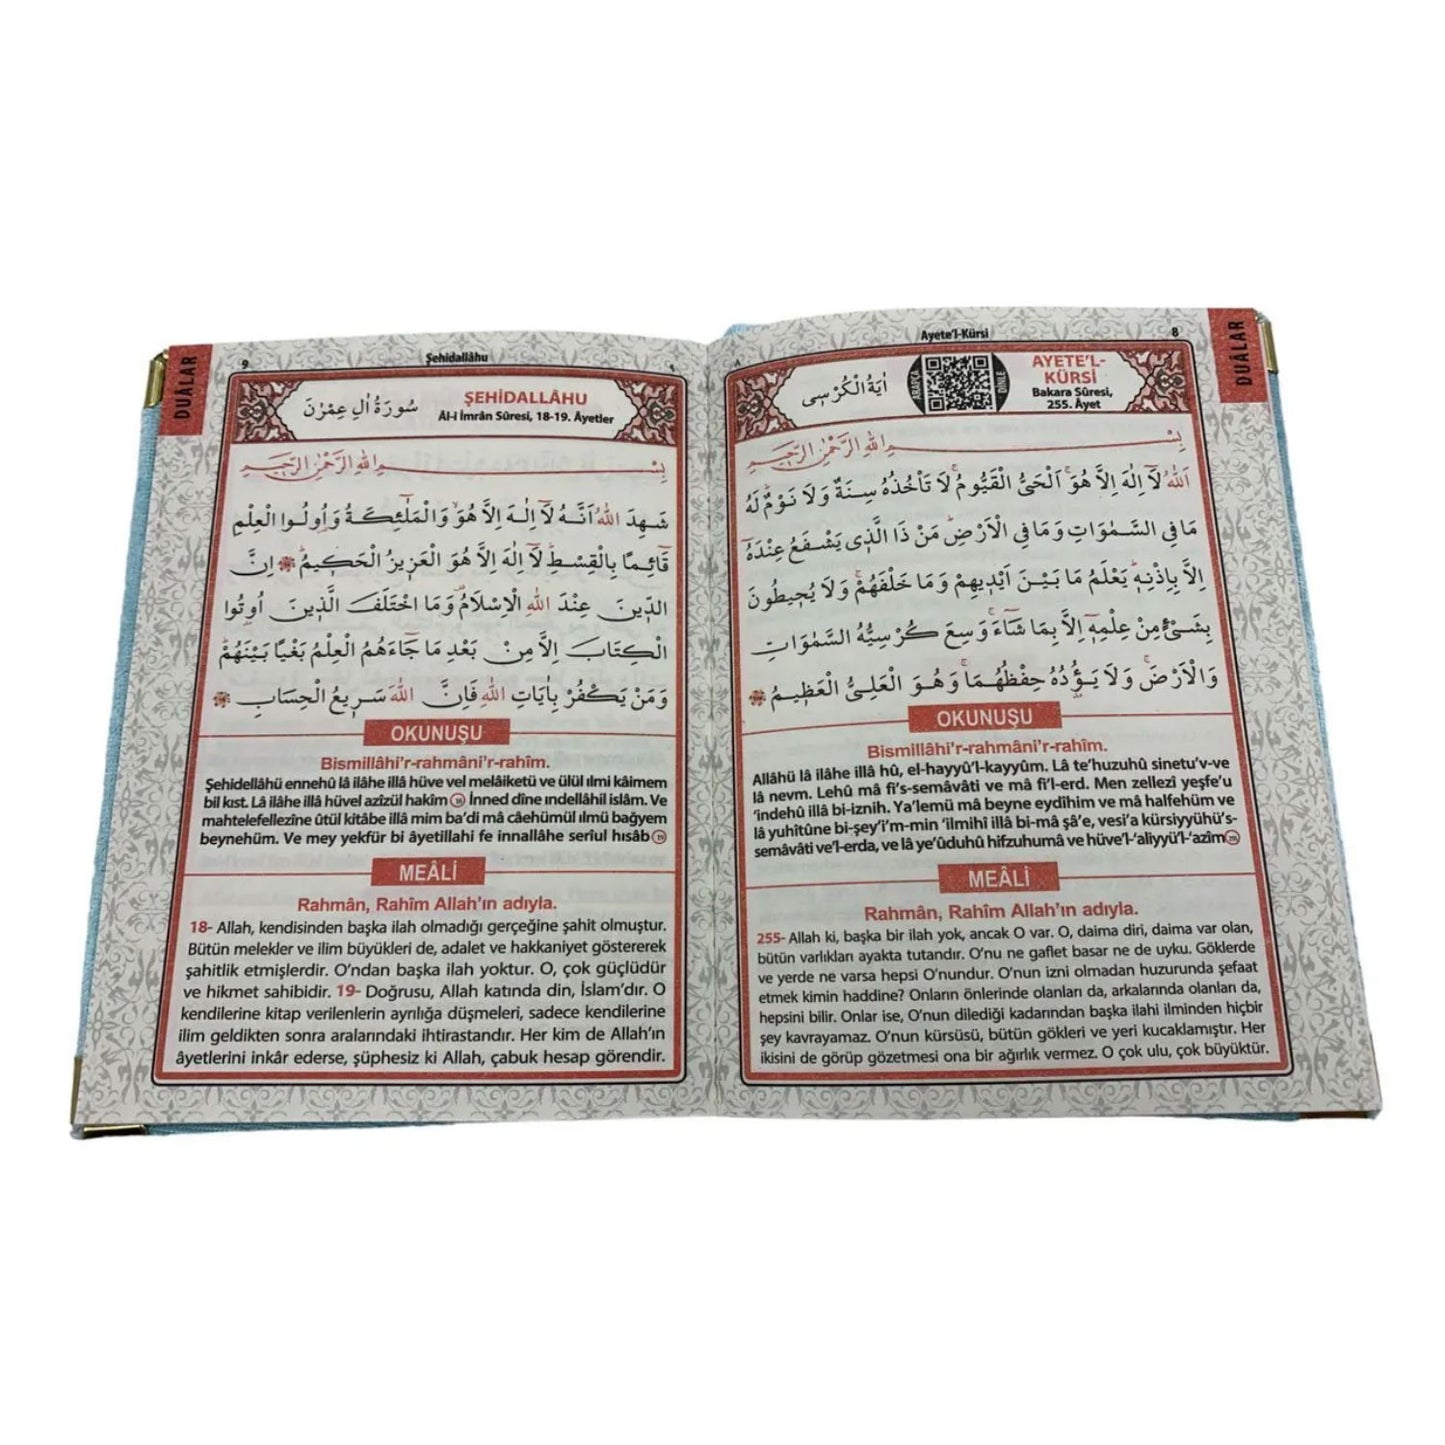 DUÂLAR
9
Şehidallâhu
٩
سُورَةُ اٰلِ عِمْرٰنَ
ŞEHİDALLÂHU
Âl-i İmrân Sûresi, 18-19. Âyetler
بِسْمِ اللّٰهِ الرَّحْمٰنِ الرَّحِيمِ
شَهِدَ اللّٰهُ اَنَّهُ لَٓا اِلٰهَ اِلَّا هُوَۙ وَالْمَلٰٓئِكَةُ وَاُولُوا الْعِلْمِ
قَٓائِمًا بِالْقِسْطِۜ لَٓا اِلٰهَ اِلَّا هُوَ الْعَزِيزُ الْحَكِيمُۜ اِنَّ
الدّ۪ينَ عِنْدَ اللّٰهِ الْاِسْلَامُ۠ وَمَا اخْتَلَفَ الَّذ۪ينَ اُوتُوا
الْكِتَابَ اِلَّا مِنْ بَعْدِ مَا جَٓاءَهُمُ الْعِلْمُ بَغْيًا بَيْنَهُمْۜ
وَمَنْ يَكْفُرْ بِاٰيَاتِ اللّٰهِ فَاِنَّ اللّٰهَ سَر۪يعُ الْحِسَابِ
OKUNUŞU
Bismillâhi'r-rahmâni'r-rahîm.
Şehidellâhü ennehû lâ ilâhe illâ hüve vel melâiketü ve ülül ılmi kâimem
bil kıst. Lâ ilâhe illâ hüvel azîzül hakîm 18 İnned dîne ındellâhil islâm. Ve
mahtelefellezîne ûtül kitâbe illâ mim ba'di mâ câehümül ılmü bağyem
beynehüm. Ve mey yekfür bi âyetillahi fe innallâhe serîul hısâb 19
MEÂLİ
Rahmân, Rahîm Allah'ın adıyla.
18- Allah, kendisinden başka ilah olmadığı gerçeğine şahit olmuştur.
Bütün melekler ve ilim büyükleri de, adalet ve hakkaniyet göstererek
şahitlik etmişlerdir. O'ndan başka ilah yoktur. O, çok güçlüdür
ve hikmet sahibidir. 19- Doğrusu, Allah katında din, İslam'dır. O
kendilerine kitap verilenlerin ayrılığa düşmeleri, sadece kendilerine
ilim geldikten sonra aralarındaki ihtirastandır. Her kim de Allah'ın
âyetlerini inkâr ederse, şüphesiz ki Allah, çabuk hesap görendir.
٨
Ayete'l-Kürsi
8
DUÂLAR
اٰيَةُ الْكُرْسِى
ARAPÇA
DİNLE
AYETE'L-
KÜRSİ
Bakara Sûresi,
255. Âyet
بِسْمِ اللّٰهِ الرَّحْمٰنِ الرَّحِيمِ
اَللّٰهُ لَٓا اِلٰهَ اِلَّا هُوَۚ اَلْحَىُّ الْقَيُّومُۚ لَا تَأْخُذُهُ سِنَةٌ وَلَا نَوْمٌۜ لَهُ
مَا فِى السَّمٰوَاتِ وَمَا فِى الْاَرْضِۜ مَنْ ذَا الَّذ۪ى يَشْفَعُ عِنْدَهُٓ
اِلَّا بِاِذْنِه۪ۜ يَعْلَمُ مَا بَيْنَ اَيْد۪يهِمْ وَمَا خَلْفَهُمْۚ وَلَا يُح۪يطُونَ
بِشَىْءٍ مِنْ عِلْمِه۪ٓ اِلَّا بِمَا شَٓاءَۚ وَسِعَ كُرْسِيُّهُ السَّمٰوَاتِ
وَالْاَرْضَۚ وَلَا يَؤُ۫دُهُ حِفْظُهُمَاۚ وَهُوَ الْعَلِىُّ الْعَظ۪يمُ
OKUNUŞU
Bismillâhi'r-rahmâni'r-rahîm.
Allâhü lâ ilâhe illâ hû, el-hayyû'l-kayyûm. Lâ te'huzuhû sinetu'v-ve
lâ nevm. Lehû mâ fi's-semâvâti ve-mâ fi'l-erd. Men zellezî yeşfe'u
'indehû illâ bi-iznih. Ya'lemü mâ beyne eydîhim ve mâ halfehüm ve
lâ yuhîtûne bi-şey'i'm-min 'ilmihî illâ bi-mâ şâ'e, vesi'a kürsiyyühü's-
semâvâti ve'l-erda, ve lâ ye'ûduhû hifzuhumâ ve hüve'l-'aliyyü'l-'azîm
MEÂLİ
Rahmân, Rahîm Allah'ın adıyla.
255- Allah ki, başka bir ilah yok, ancak O var. O, daima diri, daima var olan,
bütün varlıkları ayakta tutandır. O'nu ne gaflet basar ne de uyku. Göklerde
ve yerde ne varsa hepsi O'nundur. O'nun izni olmadan huzurunda şefaat
etmek kimin haddine? Onların önlerinde olanları da, arkalarında olanları da,
hepsini bilir. Onlar ise, O'nun dilediği kadarından başka ilahi ilminden hiçbir
şey kavrayamaz. O'nun kürsüsü, bütün gökleri ve yeri kucaklamıştır. Her
ikisini de görüp gözetmesi ona bir ağırlık vermez. O çok ulu, çok büyüktür.